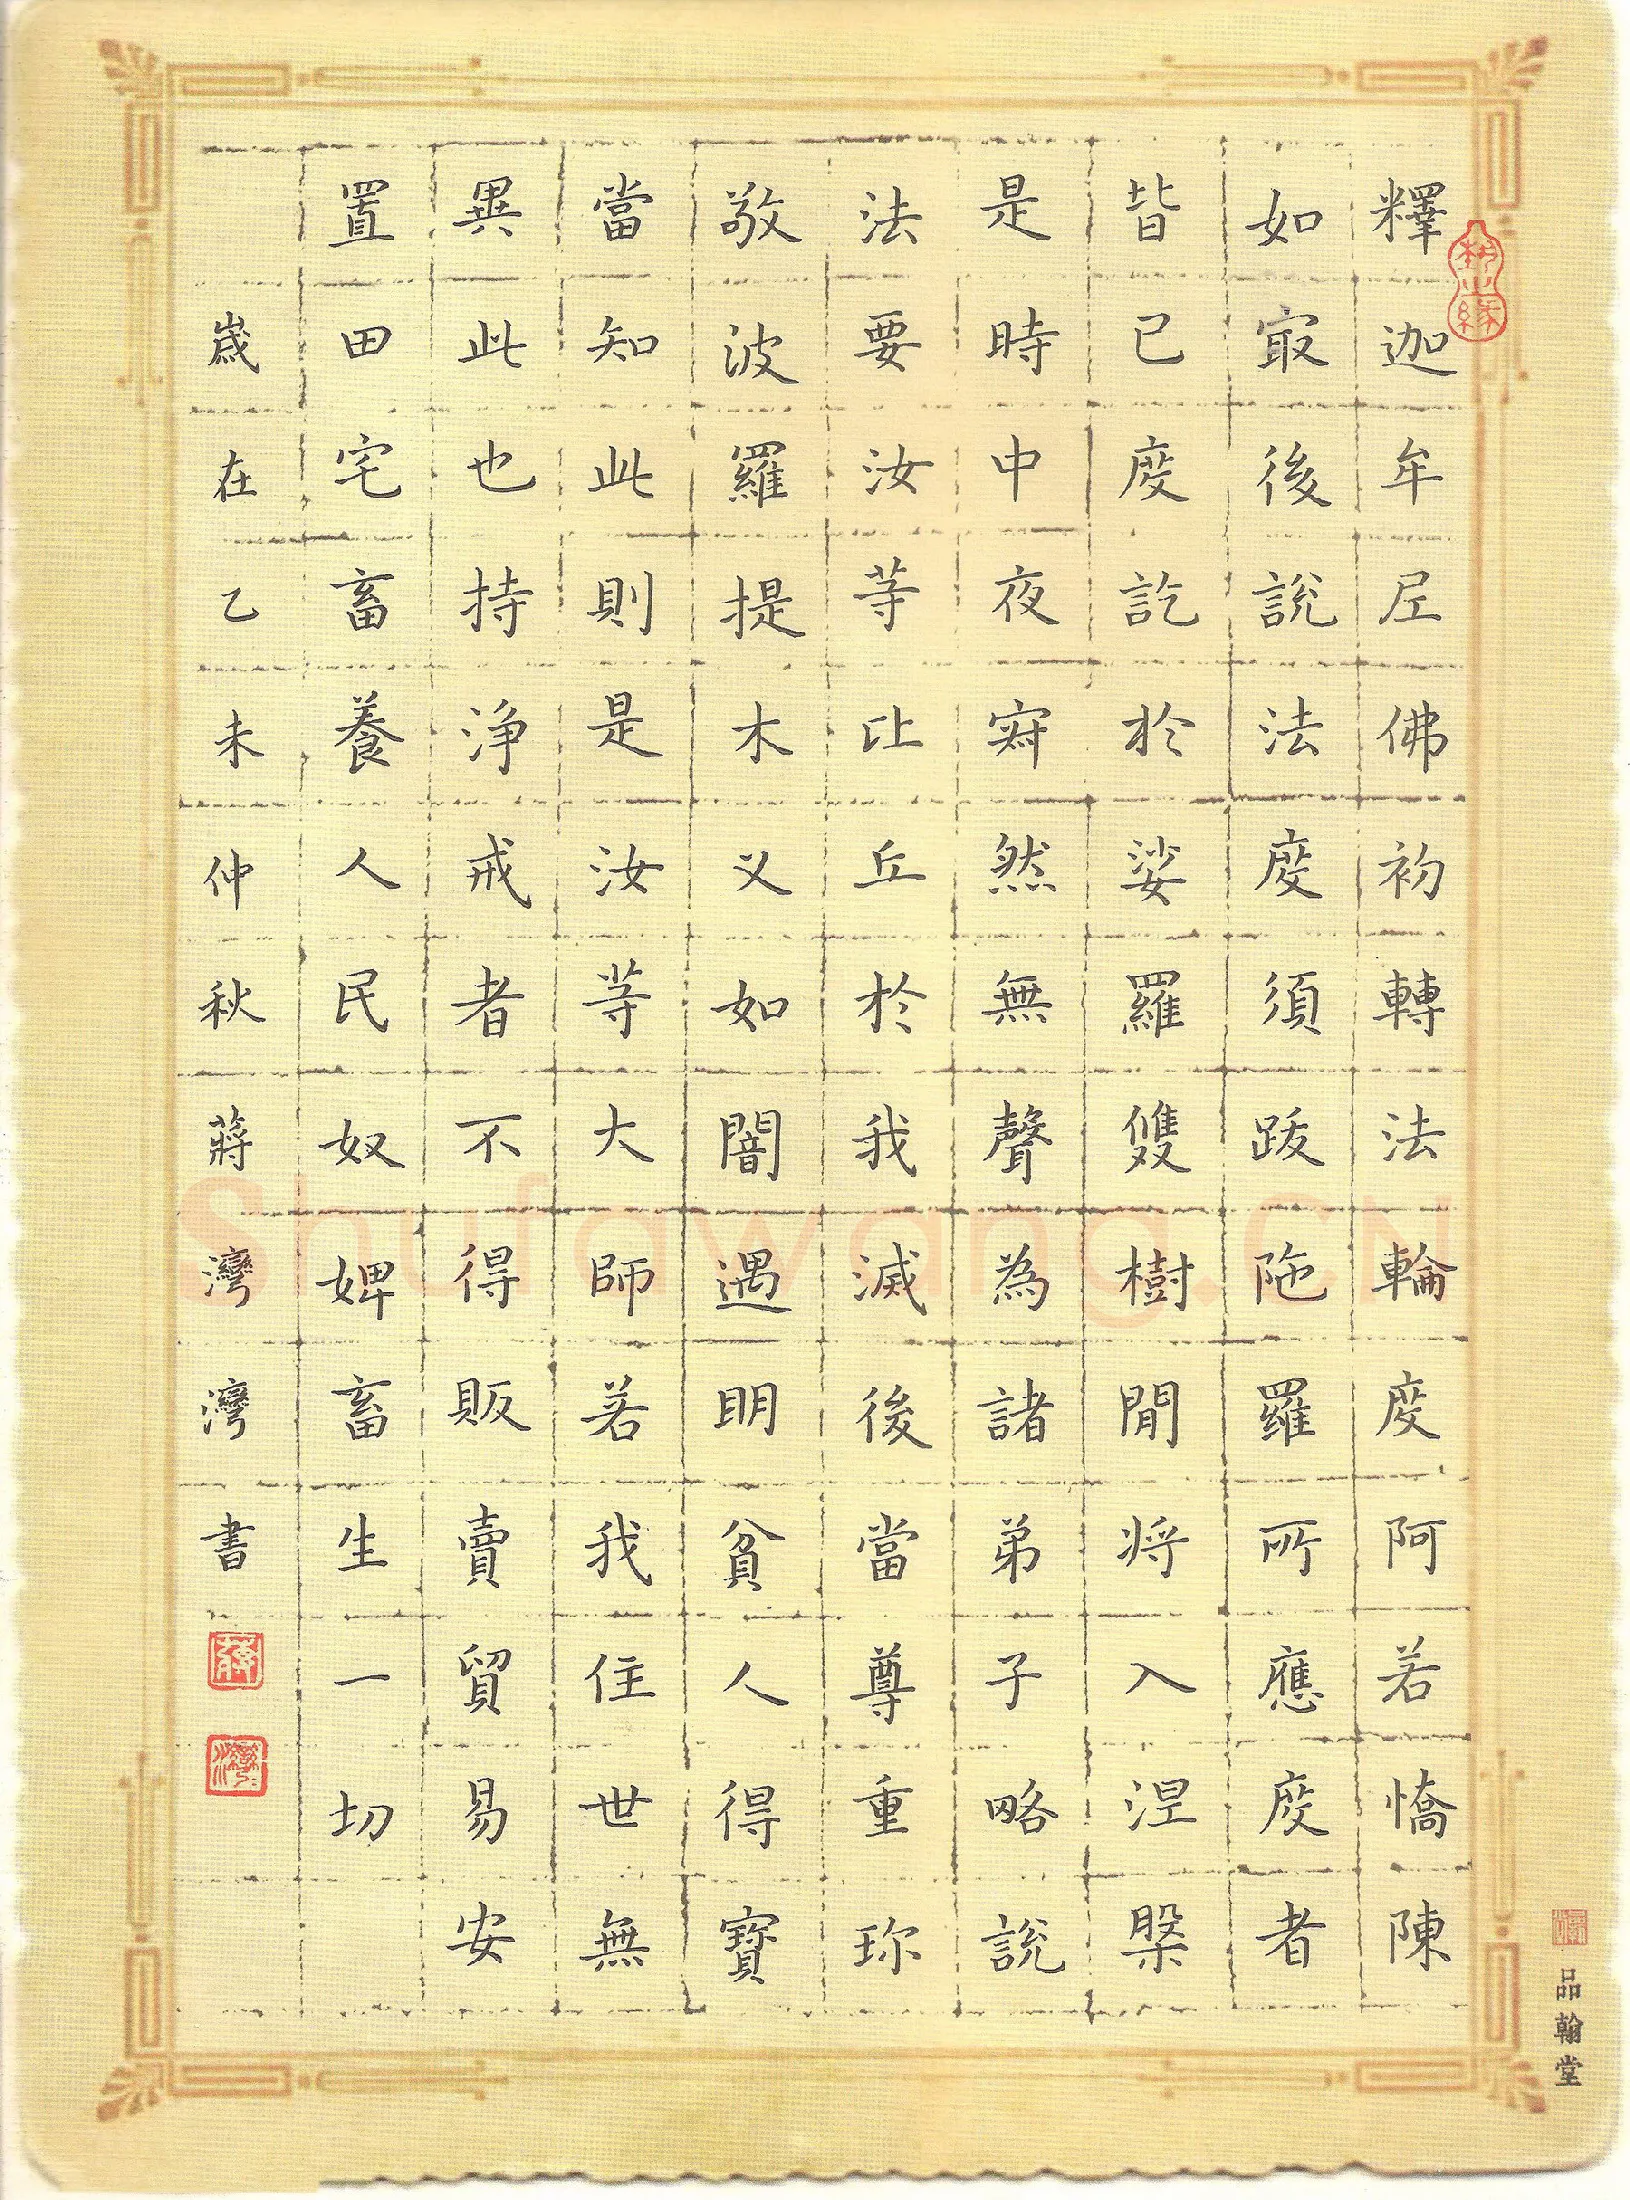 釋迦牟尼佛初轉法輪度阿若憍陳
如最後說法度須跋陁羅所應度者
皆已度訖於娑羅雙樹間將入涅槃
是時中夜寂然無聲為諸弟子略說
法要汝等比丘於我滅後當尊重珍
敬波羅提木叉如闇遇明貧人得寶
當知此則是汝等大師若我住世無
異此也持淨戒者不得販賣貿易安
置田宅畜養人民奴婢畜生一切
歲在乙未仲秋蔣灣灣書
品翰堂
Shufawang.CN